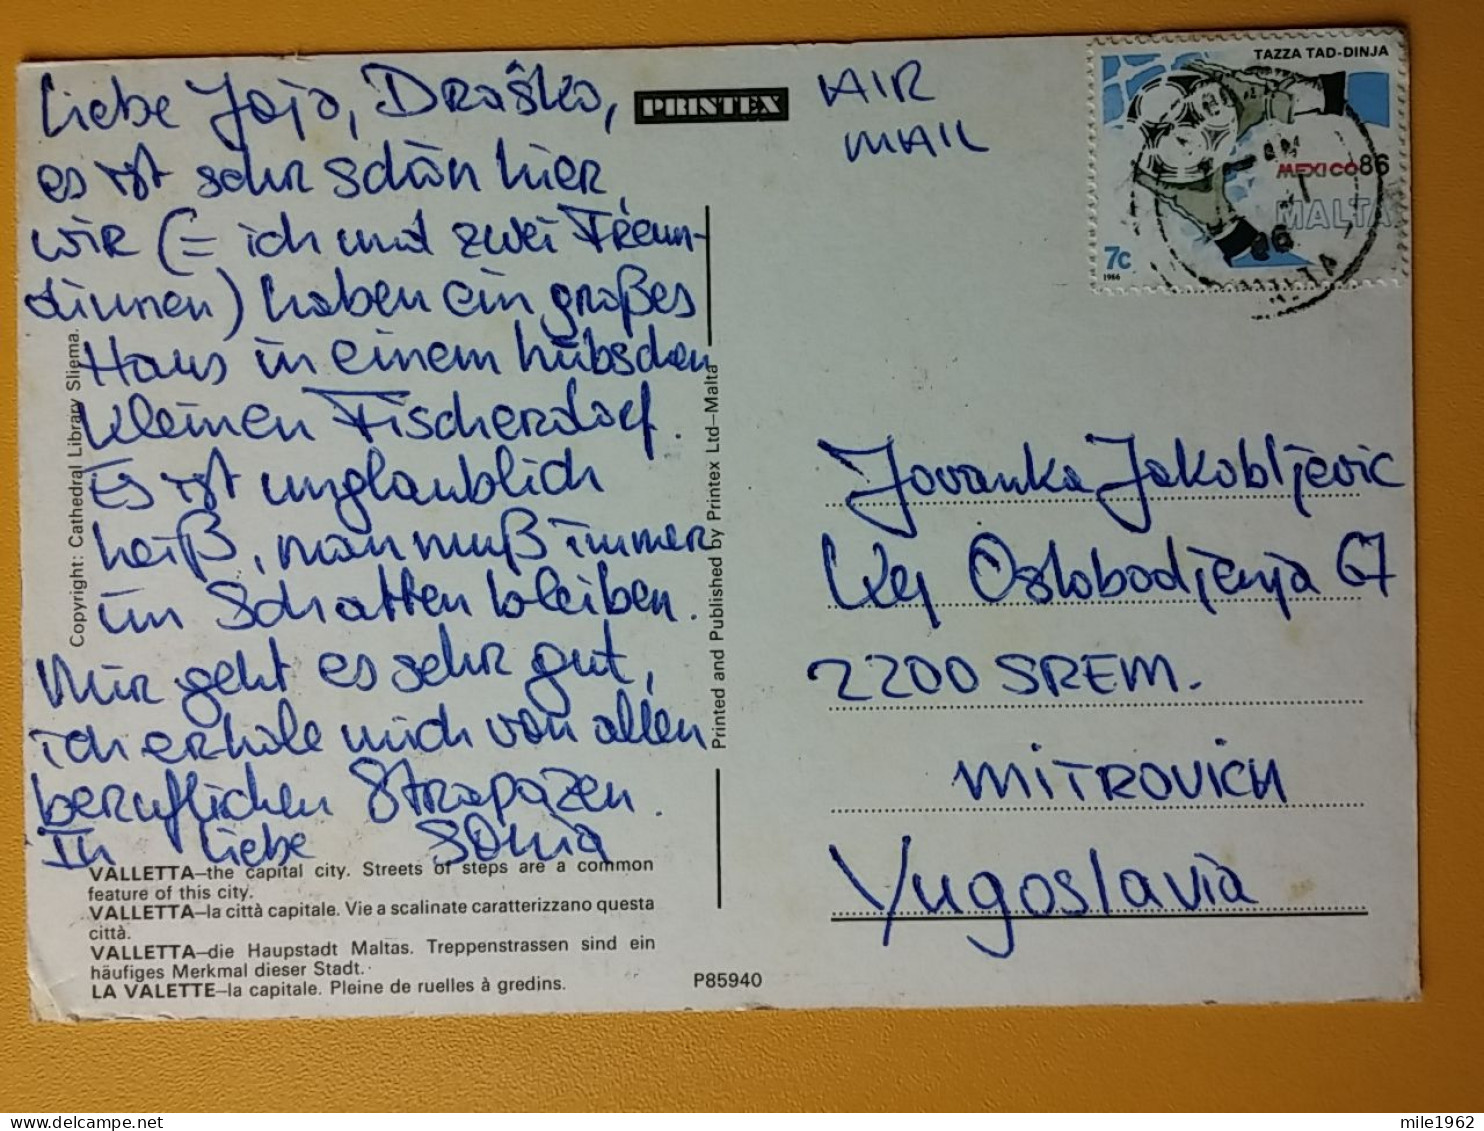 Liebe Jojo, Draŝko,
es ist sehr schön hier,
wir (= ich und zwei Freun-
dinnen) haben ein großes
Haus in einem hübschen
kleinen Fischerdorf.
Es ist unglaublich
heiß, man muß immer
im Schatten bleiben.
Mir geht es sehr gut,
ich erhole mich von allen
beruflichen Strapazen.
In Liebe Sonia
VALLETTA—the capital city. Streets of steps are a common
feature of this city.
VALLETTA—la città capitale. Vie a scalinate caratterizzano questa
città.
VALLETTA—die Haupstadt Maltas. Treppenstrassen sind ein
häufiges Merkmal dieser Stadt.
LA VALETTE—la capitale. Pleine de ruelles à gredins.
Copyright: Cathedral Library Sliema.
PRINTEX
Printed and Published by Printex Ltd—Malta
P85940
AIR
MAIL
TAZZA TAD-DINJA
MEXICO86
MALTA
7c
1986
86
MALTA
Jovanka Jakobljevic
Oslobodjenja 67
2200 SREM.
MITROVICH
Yugoslavia
mile1962